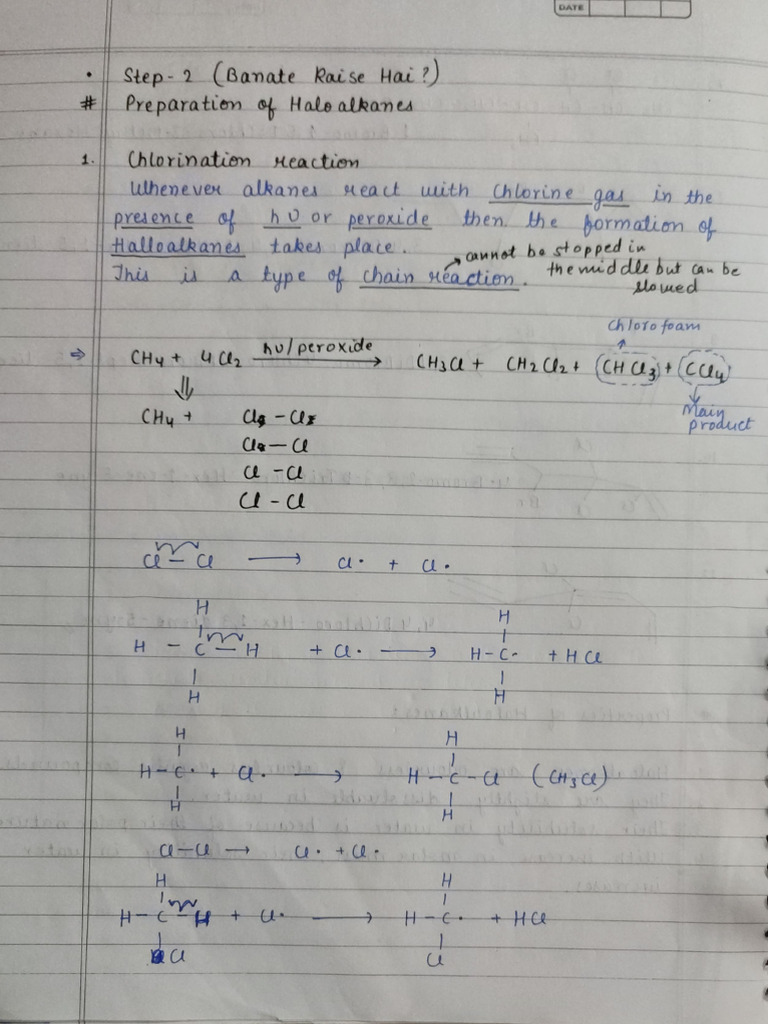 DATE
• Step-2 (Banate Kaise Hai?)
# Preparation of Haloalkanes
1. Chlorination reaction
Whenever alkanes react with Chlorine gas in the
presence of hυ or peroxide then the formation of
Halloalkanes takes place.
This is a type of chain reaction. → cannot be stopped in
the middle but can be
slowed
Chlorofoam
⇒ CH4 + 4Cl2 —hυ/peroxide→ CH3Cl + CH2Cl2 + CHCl3 + CCl4
Main
product
CH4 + Cl - Cl
Cl - Cl
Cl - Cl
Cl - Cl
Cl - Cl → Cl• + Cl•
H H
H - C - H + Cl• → H - C• + HCl
H H
H H
H - C• + Cl• → H - C - Cl (CH3Cl)
H H
Cl - Cl → Cl• + Cl•
H H
H - C - H + Cl• → H - C• + HCl
Cl Cl